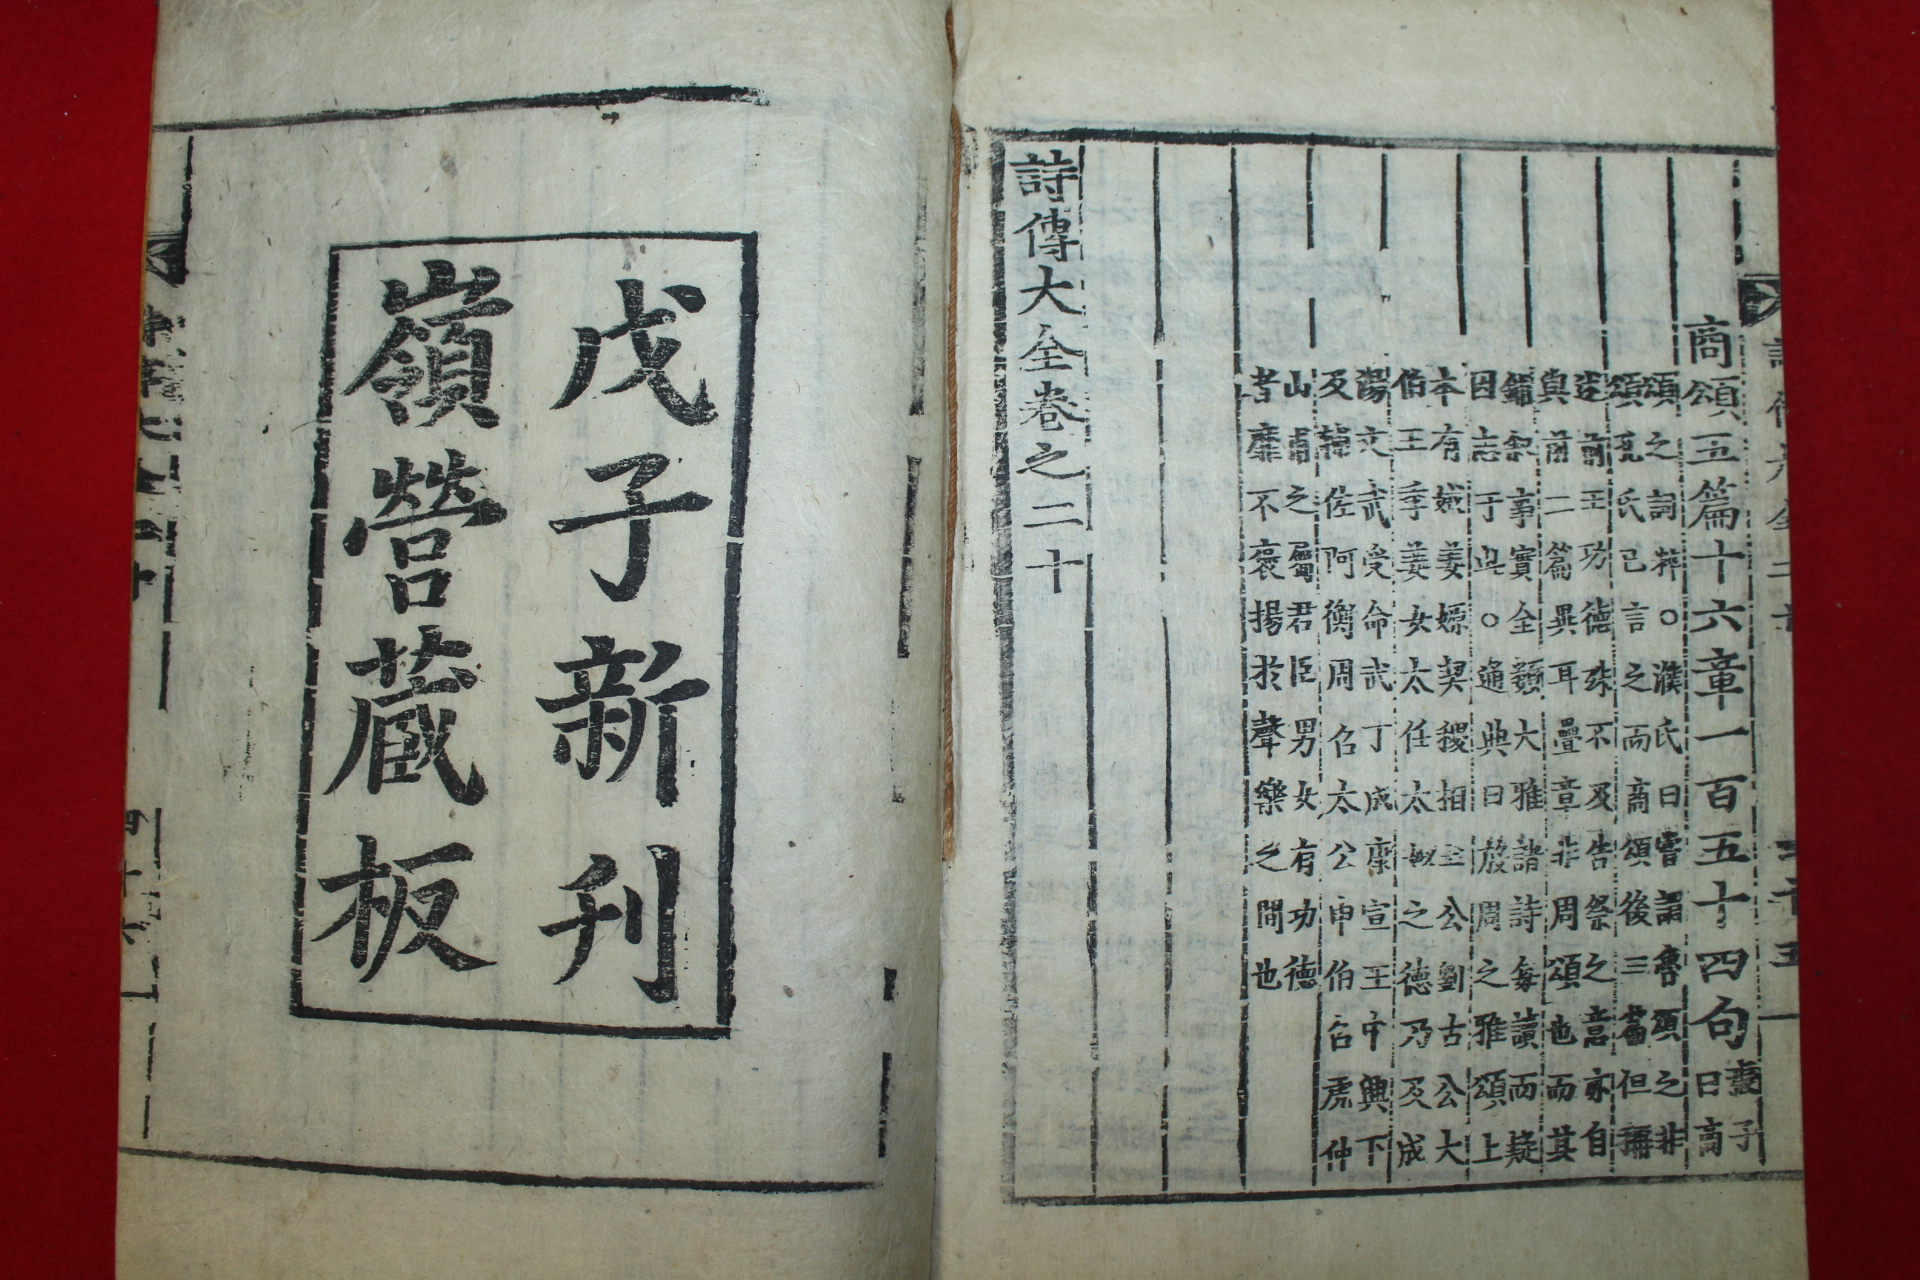 商頌五篇十六章一百五十四句
慶子
曰商
頌之詞莽○濮氏曰嘗謂魯頌之非
頌先氏已言之而商頌後三篇但稱
述前王功德殊不及告祭之意亦自
與前二篇異耳疊章非周頌也而其
鋪叙事實全類大雅諸詩每讀而疑
因志于此○通典曰放周之雅頌上
本有娀姜嫄契稷相土公劉古公大
伯王季姜女太任太姒之德乃及成
湯文武受命武丁成康宣王中興下
及輔佐阿衡周召太公申伯召虎仲
山甫之屬君臣男女有功德
者靡不褒揚於聲樂之間也
詩傳大全卷之二十
戊子新刊
嶺營藏板